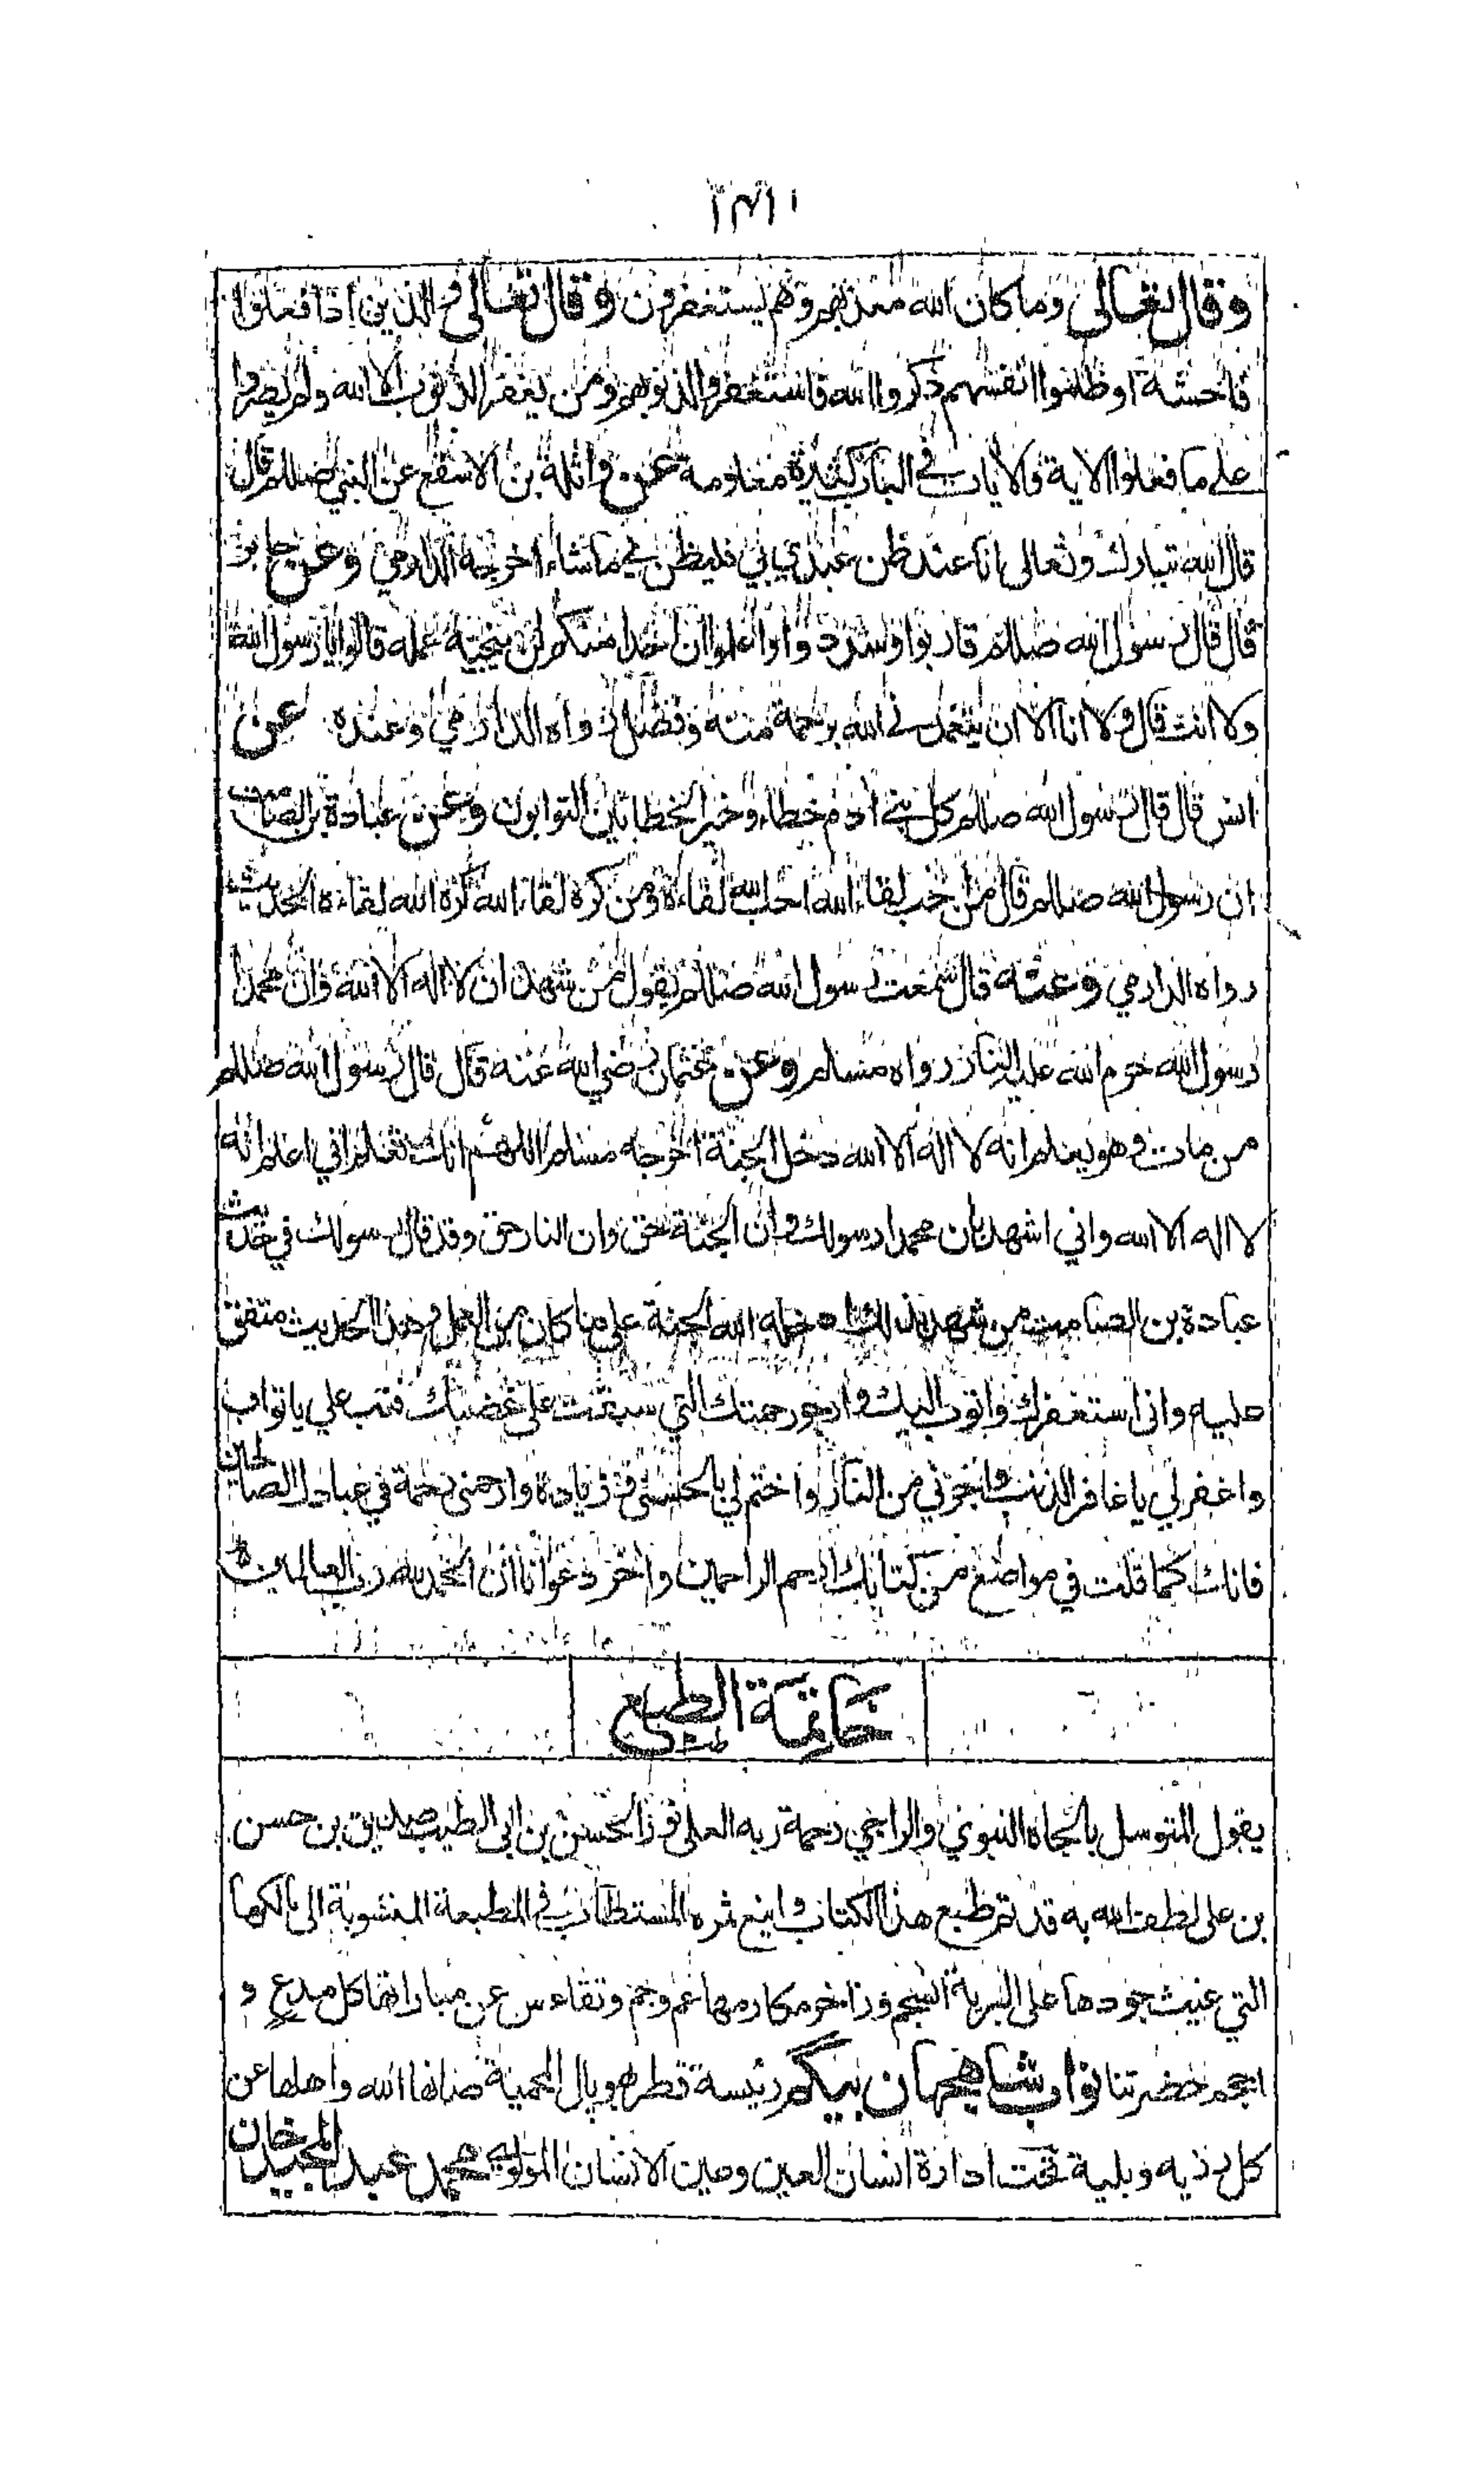 وقال تعالى وما كان الله معذبهم وهم يستغفرون وقال تعالى والذين اذا فعلوا
فاحشة او ظلموا انفسهم ذكروا الله فاستغفروا لذنوبهم ومن يغفر الذنوب الا الله ولم يصروا
على ما فعلوا الاية والايات في الباب كثيرة معلومة عن واثلة بن الاسقع عن النبي صللم قال
قال الله تبارك وتعالى انا عند ظن عبدي بي فليظن بي ما شاء اخرجه الدارمي وعن جابر
قال قال رسول الله صللم قاربوا وسددوا واعلموا ان احدا منكم لن ينجيه عمله قالوا يا رسول الله
ولا انت قال ولا انا الا ان يتغمدني الله برحمة منه وفضل رواه الدارمي وعنده عن
انس قال قال رسول الله صللم كل بني ادم خطاء وخير الخطائين التوابون وعن عبادة بن الصامت
ان رسول الله صللم قال من احب لقاء الله احب الله لقاءه ومن كره لقاء الله كره الله لقاءه الحديث
رواه الدارمي وعنه قال سمعت رسول الله صللم يقول من شهد ان لا اله الا الله وان محمدا
رسول الله حرم الله عليه النار رواه مسلم وعن عثمان رضي الله عنه قال قال رسول الله صللم
من مات وهو يعلم انه لا اله الا الله دخل الجنة اخرجه مسلم اللهم انك تعلم اني اعلم انه
لا اله الا الله واني اشهد بان محمدا رسولك وان الجنة حق وان النار حق وقد قال رسولك في حديث
عبادة بن الصامت من شهد بذلك ادخله الله الجنة على ما كان من العمل وهذا الحديث متفق
عليه واني استغفرك واتوب اليك وارجو رحمتك التي سبقت على غضبك فتب علي يا تواب
واغفر لي يا غافر الذنب واجرني من النار واختم لي بالحسنى وزيادة وارحمني برحمة في عبادك الصالحين
فانك كما قلت في مواضع من كتابك ارحم الراحمين واخر دعوانا ان الحمد لله رب العالمين
خاتمة الطبع
يقول المتوسل بالجاه النبوي والراجي رحمة ربه العلي نور الحسن بن ابي الطيب صديق بن حسن
بن علي لطف الله به قد تم طبع هذا الكتاب واينع ثمره المستطاب في المطبعة المنسوبة الى مالكها
التي غيث جودها على البرية انسجم وزاخر مكارمها عم وجم وتقاعس عن مباراتها كل مدع و
احجم حضرتنا نواب شاهجهان بيگم رئيسة قطر بهوپال المحمية صانها الله واهلها عن
كل رزيه وبلية تحت ادارة انسان العين وعين الانسان المولوي محمد عبد المجيد خان